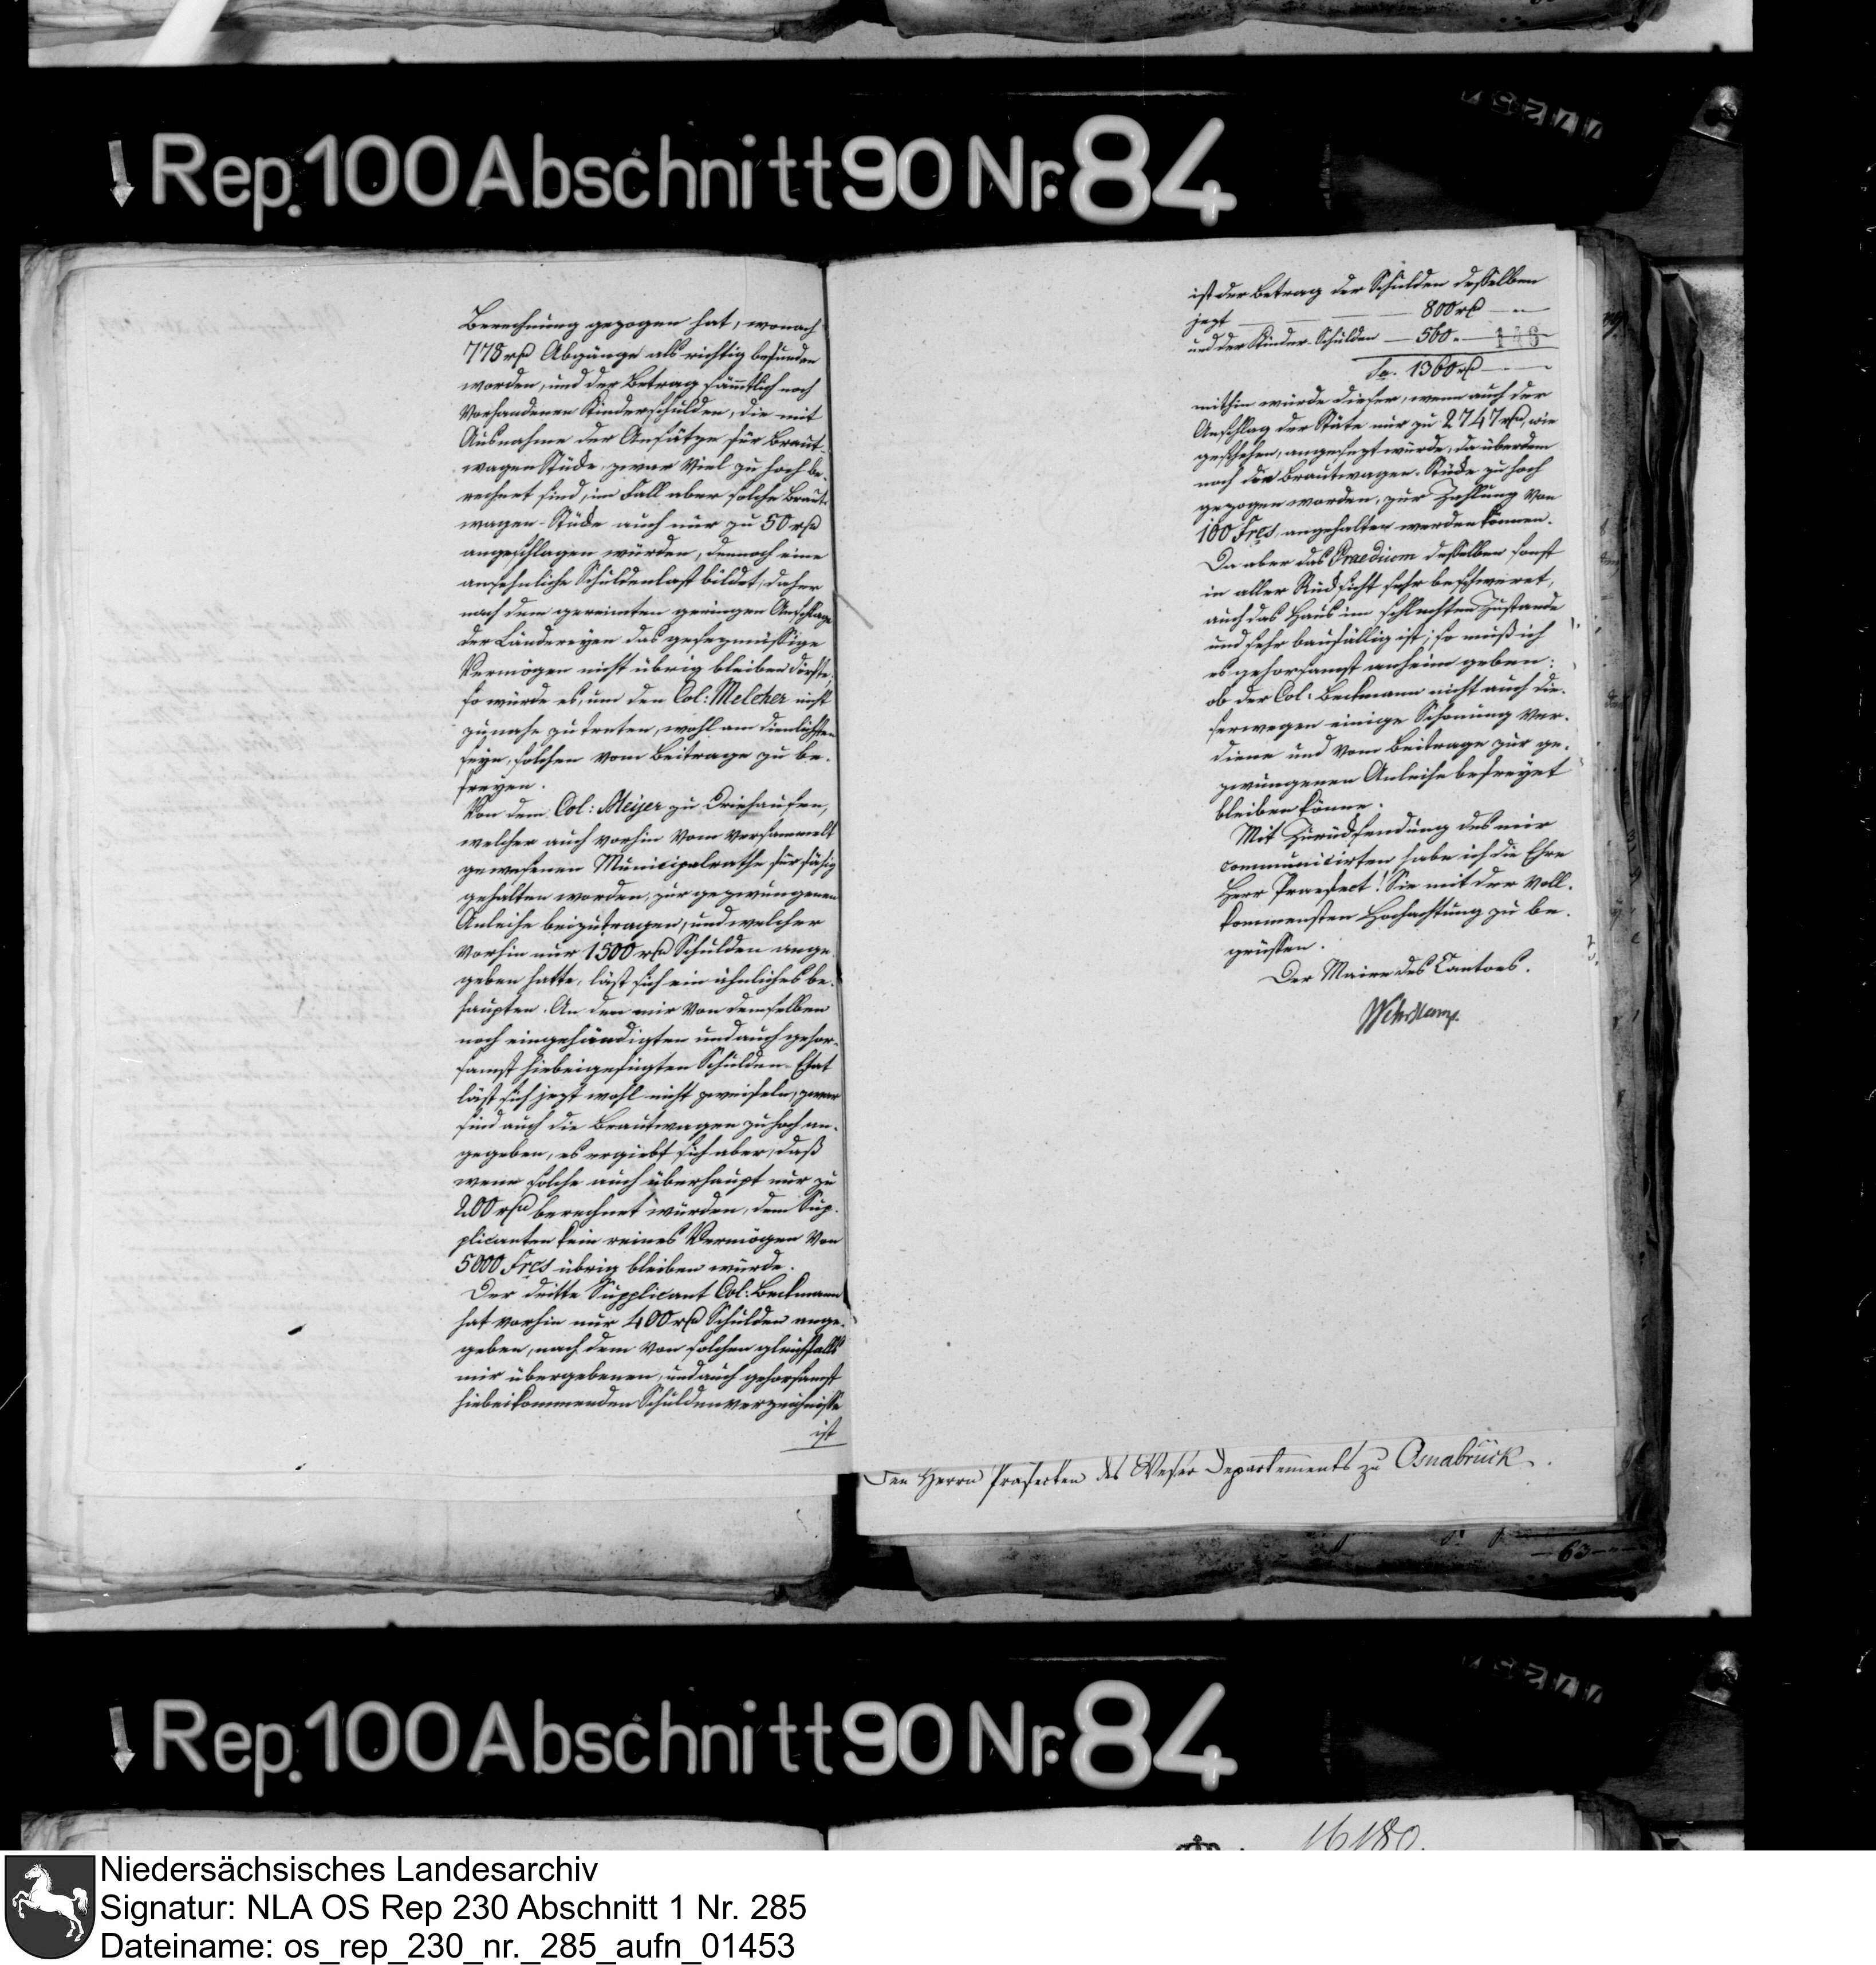 Rep. 100 Abschnitt 90 Nr. 84
Berechnung gezogen hat, wonach
778 rthlr Abgänge als richtig befunden
worden, und der Betrag sämtlich noch
vorhandener Kinderschulden, die mit
Ausnahme der Ansätze für Braut-
wagen Stücke, zwar viel zu hoch be-
rechnet sind, im Fall aber solche Braut-
wagen-Stücke auch nur zu 50 rthlr
angeschlagen würden, dennoch eine
ansehnliche Schuldenlast bildet, daher
nach dem geringen Anschlage
der Ländereyen das gesezmässige
Vermögen nicht übrig bleiben dürfte,
so würde es, um den Col: Melcher nicht
zunahe zu treten, wohl am dienlichsten
seyn, solchen vom Beitrage zu be-
freyen.
Von dem Col: Meyer zu Driehausen,
welcher auch vorhin vom versammelt
gewesenen Municipalrathe für fähig
gehalten worden, zur gezwungenen
Anleihe beizutragen, und welcher
vorhin nur 1500 rthlr Schulden ange-
geben hatte, läst sich ein ähnliches be-
haupten. An den mir von demselben
noch eingehändigten und auch gehor-
samst hiebeigefügten Schulden-Etat
läst sich jezt wohl nicht zweifeln, zwar
sind auch die Brautwagen zu hoch an-
gegeben, es ergiebt sich aber, daß
wenn solche auch überhaupt nur zu
200 rthlr berechnet würden, dem Sup-
plicanten kein reines Vermögen von
5000 Frcs übrig bleiben würde.
Der dritte Supplicant Col: Beckmann
hat vorhin nur 400 rthlr Schulden ange-
geben, nach dem von solchen gleichfalls
mir übergebenen, und auch gehorsamst
hiebeikommenden Schuldenverzeichnisse
ist
ist der Betrag der Schulden desselben
jezt — 800 rthlr —
und der Kinder-Schulden — 560 " — 148
Sa. 1360 rthlr —
mithin würde dieser, wenn auch der
Anschlag der Stäte nur zu 2747 rthlr, wie
geschehen, angesezt würde, da überdem
noch die Brautwagen-Stücke zu hoch
gezogen worden, zur Zahlung von
100 Frcs angehalten werden können.
Da aber das Praedium desselben sonst
in aller Rücksicht sehr beschweret,
auch das Haus im schlechten Zustande
und sehr baufällig ist; so muß ich
es gehorsamst anheim geben:
ob der Col: Beckmann nicht auch die-
serwegen einige Schonung ver-
diene und vom Beitrage zur ge-
zwungenen Anleihe befreyet
bleiben könne.
Mit Zurücksendung des mir
communicirten habe ich die Ehre
Herr Praefect! Sie mit der voll-
kommensten Hochachtung zu be-
grüssen.
Der Maire des Cantons.
Wehrkamp.
Den Herrn Präfecten des Weser Departements zu Osnabrück.
63
Rep. 100 Abschnitt 90 Nr. 84
16180.
Niedersächsisches Landesarchiv
Signatur: NLA OS Rep 230 Abschnitt 1 Nr. 285
Dateiname: os_rep_230_nr._285_aufn_01453